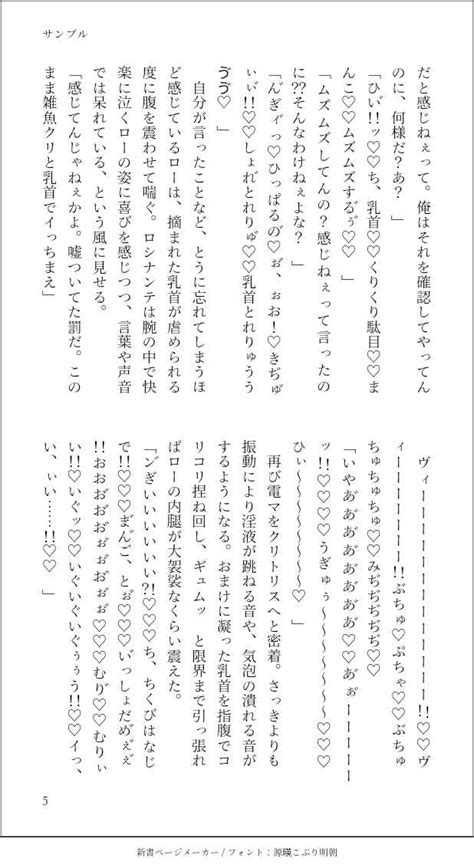 サンプル
だと感じねぇって。俺はそれを確認してやってん
のに、何様だ？あ？　」
「ひぃ゙!!ッ♡♡ち、乳首♡♡くりくり駄目♡♡ま
んこ♡♡ムズムズするぅ゙♡♡　」
「ムズムズしてんの？感じねぇって言ったの
に??そんなわけねぇよな？　」
「ん゙ぎィ゙っ♡ひっぱるの゙♡ぉ゙、ぉお！♡きぢゅ゙
ぃぃ゙!!♡♡しょれとれりゅ゙♡♡乳首とれりゅうう
ゔゔ♡　」
　自分が言ったことなど、とうに忘れてしまうほ
ど感じているローは、摘まれた乳首が虐められる
度に腹を震わせて喘ぐ。ロシナンテは腕の中で快
楽に泣くローの姿に喜びを感じつつ、言葉や声音
では呆れている、という風に見せる。
「感じてんじゃねぇかよ。嘘ついてた罰だ。この
まま雑魚クリと乳首でイっちまえ」
　ヴィーーーーーーーーーーーー!!♡♡ヴ
ィーーーーーーー!!ぷちゅ♡ぷちゃ♡♡ぷちゅ
ちゅちゅちゅ♡♡みぢぢぢぢぢ♡♡
「いやあ゙あ゙あ゙あ゙あ゙あ゙あ゙♡♡あ゙ぁ゙ーーーーー
ッ!!♡♡♡♡うぎゅぅ〜〜〜〜〜〜♡♡♡
ひぃ〜〜〜〜〜〜〜♡　」
　再び電マをクリトリスへと密着。さっきよりも
振動により淫液が跳ねる音や、気泡の潰れる音が
するようになる。おまけに凝った乳首を指腹でコ
リコリ捏ね回し、ギュムッ　と限界まで引っ張れ
ばローの内腿が大袈裟なくらい震えた。
「ン゙ぎぃいいいいい?!♡♡♡ち、ちくびはなじ
で!!♡♡♡ま゙んご、とぉ゙♡♡♡いっしょだめ゙ぇ゙ぇ゙
!!おぉお゙お゙お゙ぉ゙ぉ゙お゙ぉ゙♡♡♡むり゙♡♡むりぃ
い゙!!♡♡いぐッ♡♡いぐいぐいぐぅぅう!!♡♡イっ、
い、ぃぃ……!!♡♡　」
5
新書ページメーカー / フォント：源暎こぶり明朝